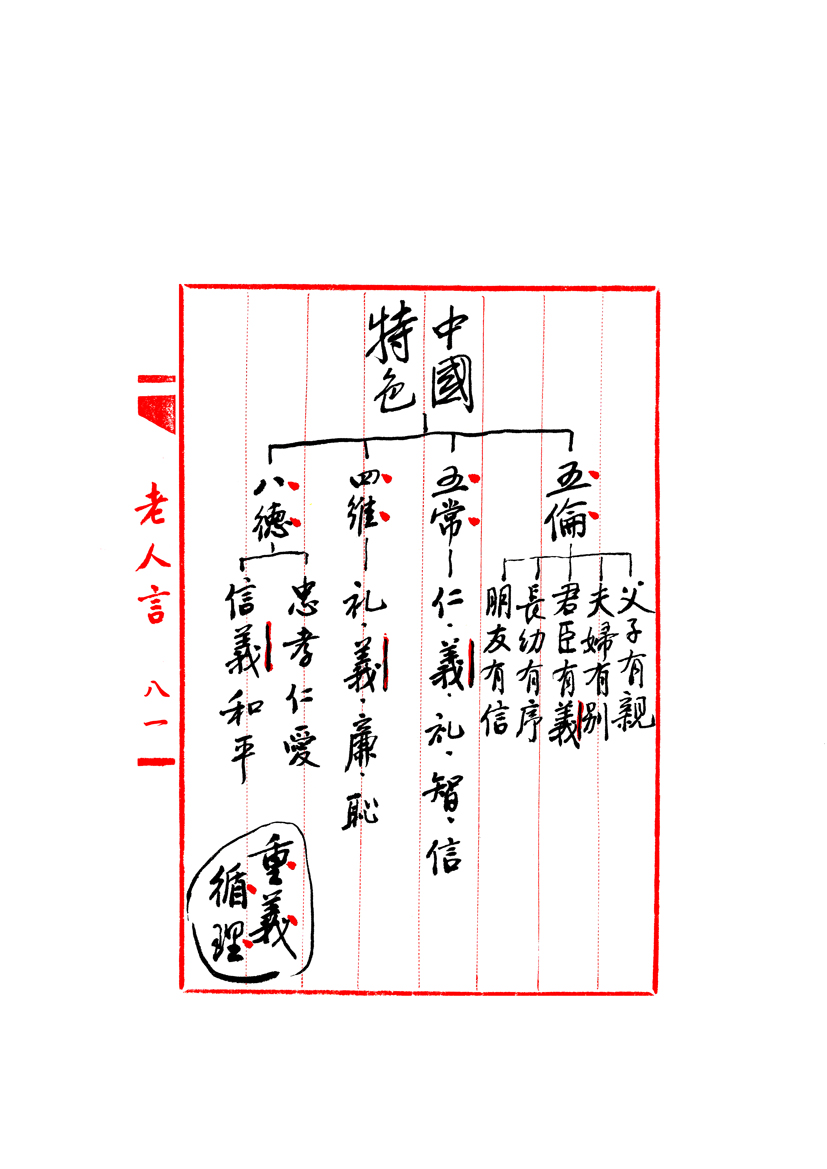 中國
特色
五倫
父子有親
夫婦有別
君臣有義
長幼有序
朋友有信
五常
仁·義·礼·智·信
四維
礼·義·廉·恥
八德
忠孝仁愛
信義和平
重義
循理
老人言 八一